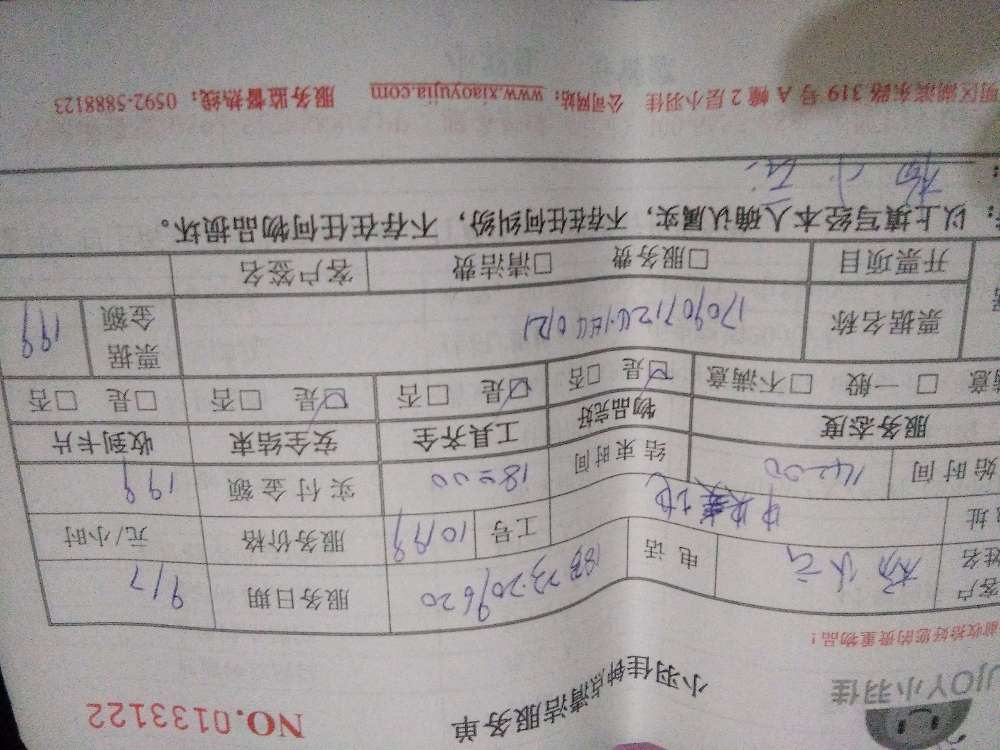 JJOY小羽佳
小羽佳钟点清洁服务单
NO.0133122
收拾好您的贵重物品!
客户姓名 杨小云 电话 服务日期 9/7
址 中央美地 工号 10199 服务价格 元/小时
始时间 14:00 结束时间 18:00 实付金额 199
服务态度 物品完好 工具齐全 安全结束 收到卡片
满意 □一般 □不满意 ☑是 □否 ☑是 □否 ☑是 □否 □是 □否
票据名称 票据金额 199
开票项目 □服务费 □清洁费 客户签名
:以上填写经本人确认属实,不存在任何纠纷,不存在任何物品损坏。
:杨小云
明区湖滨东路319号A幢2层小羽佳 公司网站:www.xiaoyujia.com 服务监督热线:0592-5888123